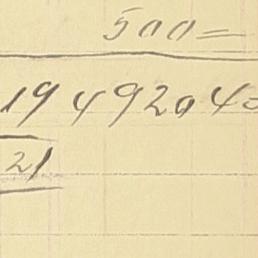 500=
19492040
21